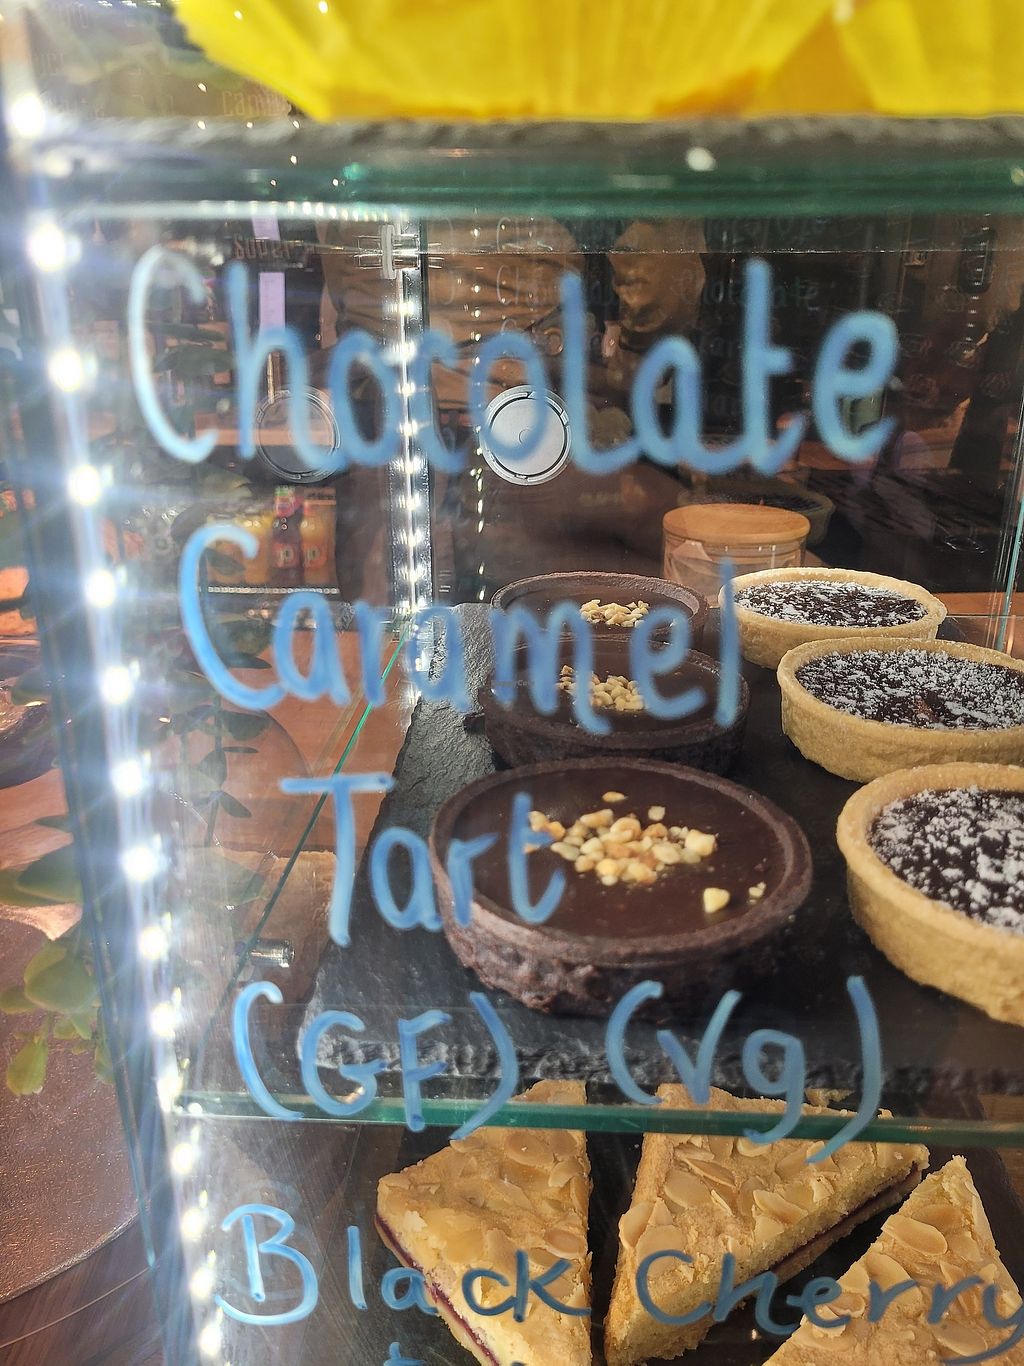 Chocolate
Caramel
Tart
(GF) (Vg)
Black Cherry